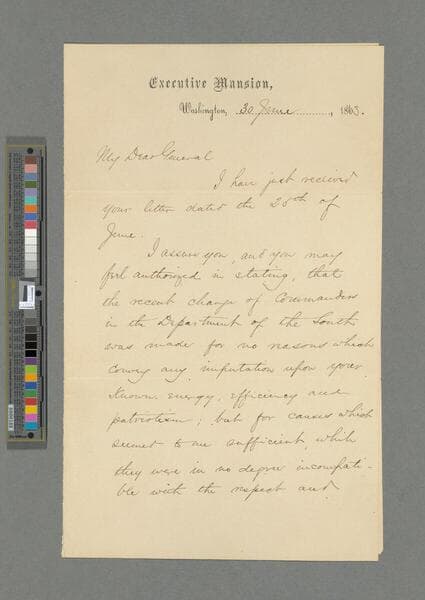 Executive Mansion,
Washington, 30 June, 1863.
My Dear General
I have just received
your letter dated the 28th of
June.
I assure you, and you may
feel authorized in stating, that
the recent change of Commanders
in the Department of the South
was made for no reasons which
convey any imputation upon your
known energy, efficiency and
patriotism; but for causes which
seemed to me sufficient, while
they were in no degree incompati-
ble with the respect and